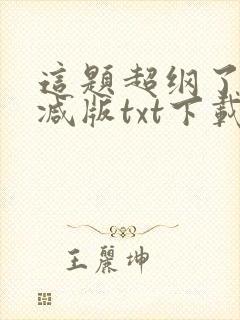 這題超纲了
减版txt下載
王麗坤